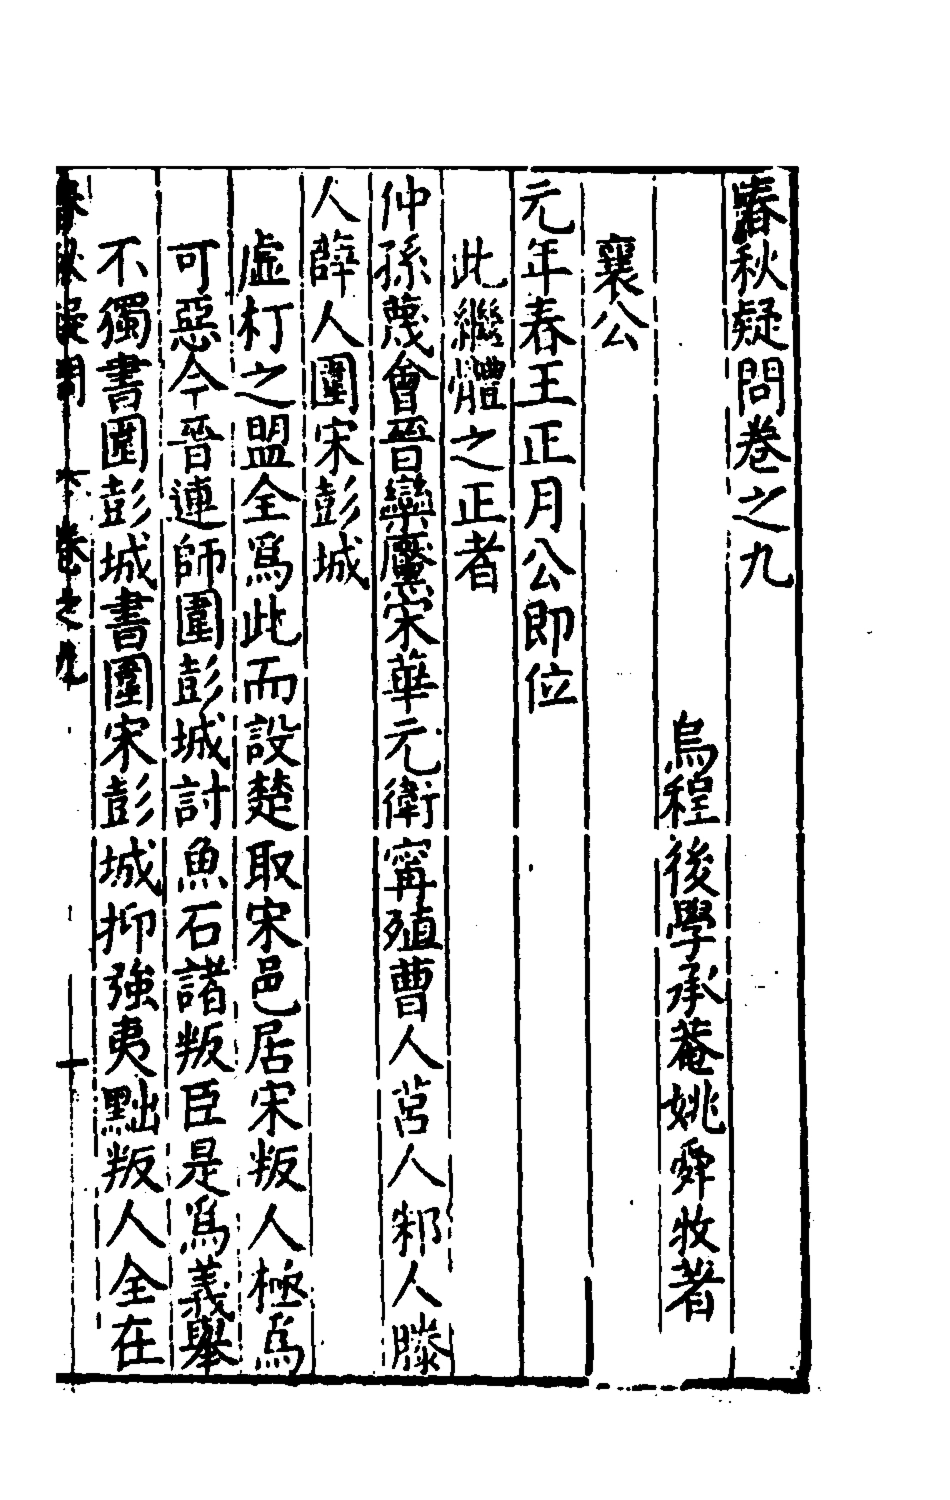 春秋疑問卷之九
烏程後學承菴姚舜牧著
襄公
元年春王正月公即位
此繼體之正者
仲孫蔑會晉欒黶宋華元衛甯殖曹人莒人邾人滕
人薛人圍宋彭城
虛朾之盟全爲此而設楚取宋邑居宋叛人極爲
可惡今晉連師圍彭城討魚石諸叛臣是爲義舉
不獨書圍彭城書圍宋彭城抑強夷黜叛人全在
春秋疑問 卷之九 一